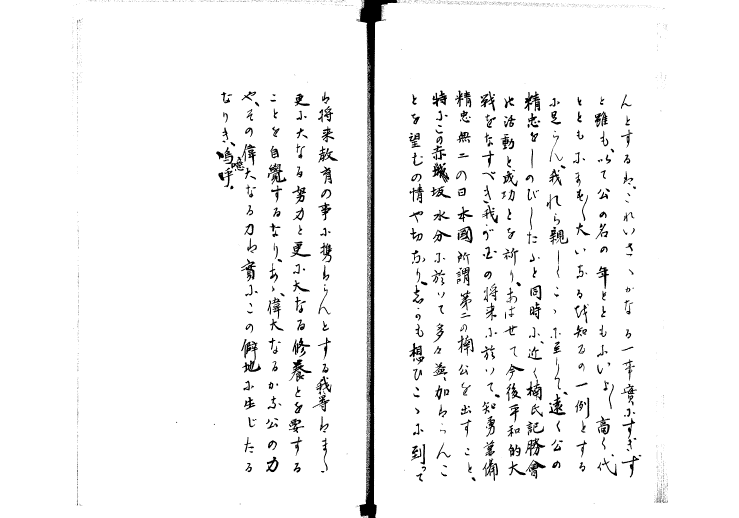 んとするは、これいさゝかなる一事實にすぎず
と雖も、以て公の名の年とともにいよ〳〵高く、代
とともにます〳〵大いなるを知るの一例とする
に足らん、我れら親しくこゝに至りて、遠く公の
精忠をしのびしたふと同時に、近く楠氏記勝會
の活動と成功とを祈り、あはせて今後平和的大
戦をなすべき我が国の将来に於いて、知勇兼備
精忠無二の日本國所謂第二の楠公を出すこと、
特にこの赤坂水分に於いて多々益、加はらんこ
とを望むの情や切なり、しかも想ひこゝに到って
は将来教育の事に携はらんとする我等はまゝ
更に大なる努力と更に大なる修養とを要する
ことを自覺するなり、あゝ、偉大なるかな公の力
や、その偉大なる力は實にこの僻地に生じたる
なりき、嗚呼。